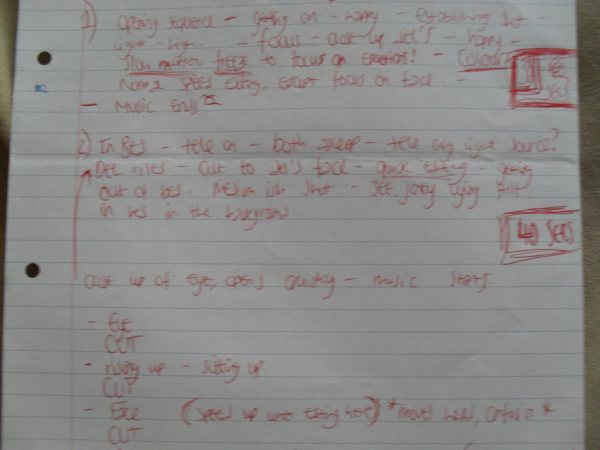 1) Opening sequence - getting on - happy - Establishing
light - - focus - close up Del's - happy -
Slow motion freeze to focus on emotions! - Colour
Normal speed editing, except focus on face
- Music Ends
SECS
2) In Bed - tele on - both asleep - tele only light source?
Del rises - Cut to Del's face - quick editing - getting
out of bed. Medium ish shot - see Joey lying still
in bed in the background.
40 SECS
close up of eye, opens quickly - music starts.
- Eye
CUT
- rising up - sitting up
CUT
- Face (speed up editing here) *moves head,
CUT